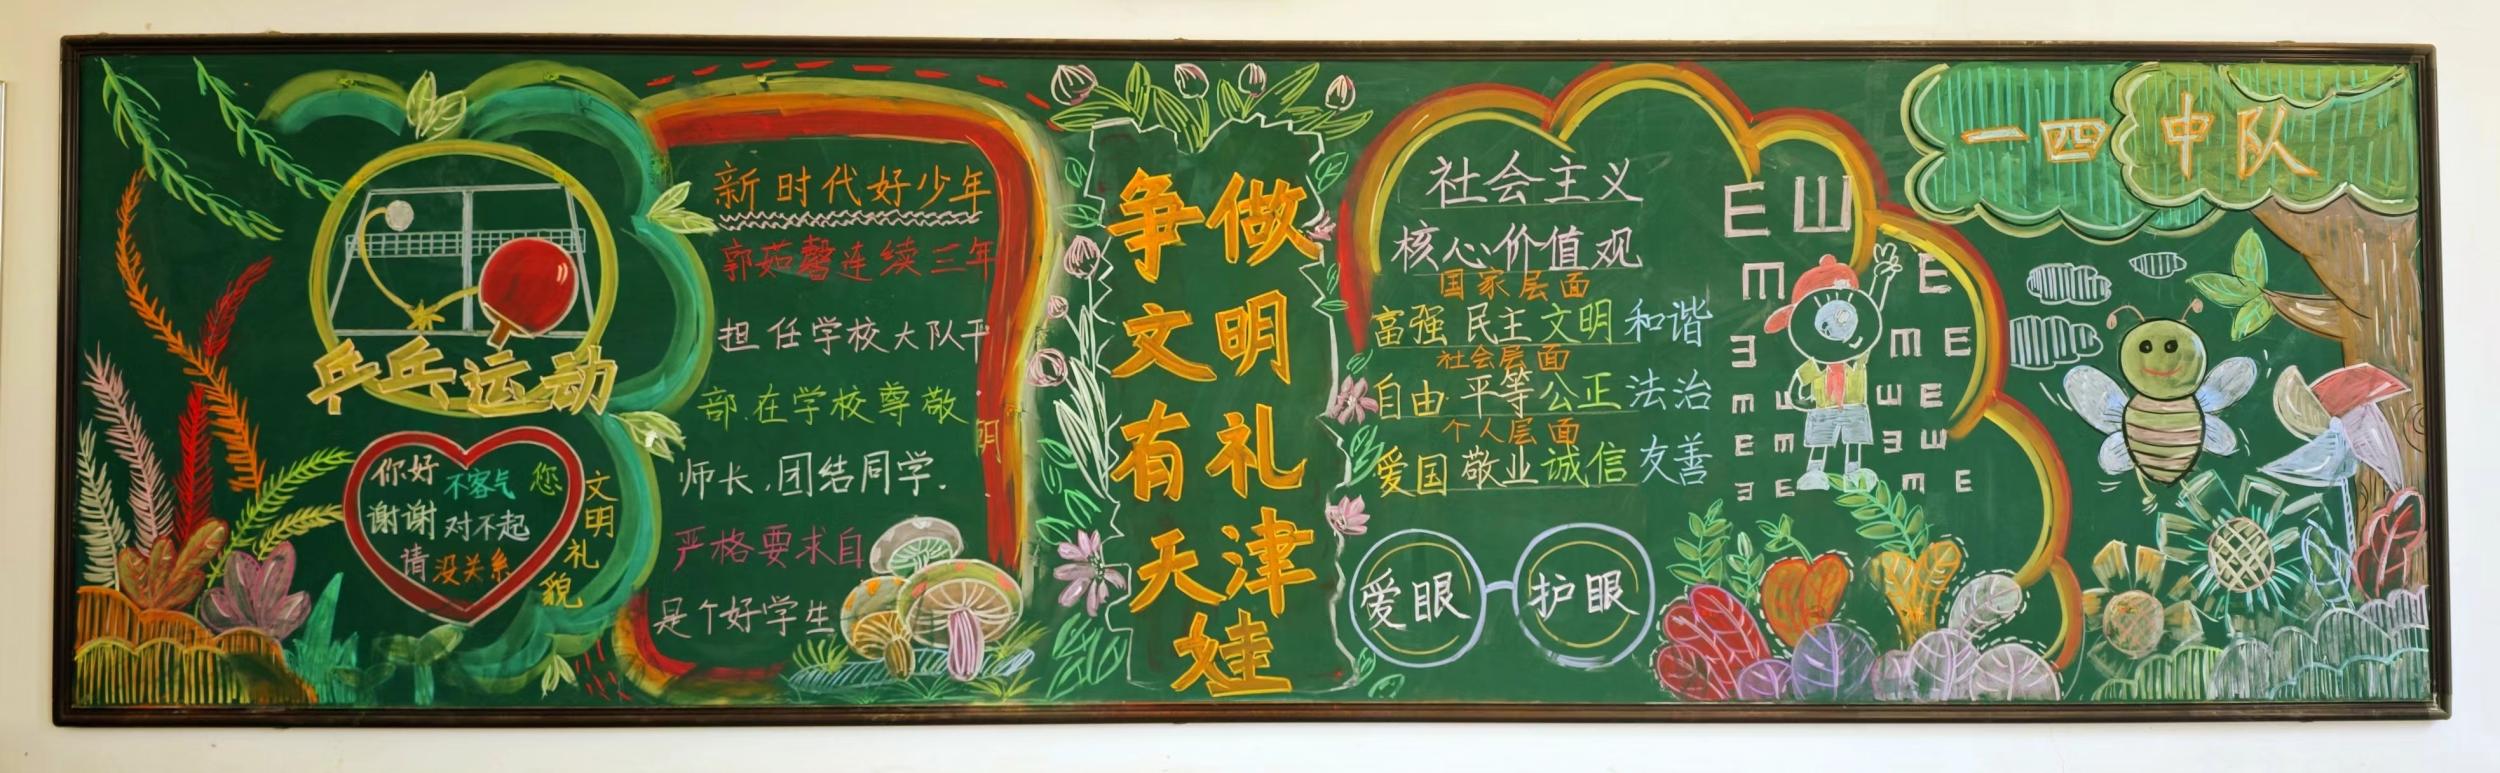 乒乓运动
你好 不客气 您
谢谢 对不起
请 没关系
文明礼貌
新时代好少年
郭茹馨连续三年
担任学校大队干
部.在学校尊敬
师长,团结同学.
严格要求自
是个好学生
争做
文明
有礼
天津
娃
社会主义
核心价值观
国家层面
富强 民主 文明 和谐
社会层面
自由 平等 公正 法治
个人层面
爱国 敬业 诚信 友善
爱眼 护眼
E Ш
一四中队